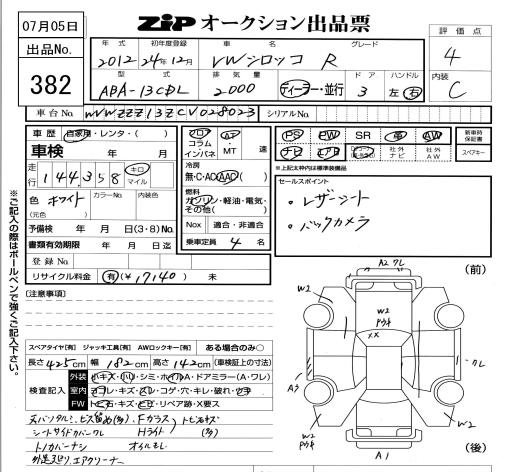 07月05日
出品No.
382
ZIP オークション出品票
評価点
4
内装
C
年式
2012
初年度登録
24年12月
車名
VWシロッコ R
グレード
型式
ABA-13CDL
排気量
2000
ディーラー・並行
ドア
3
ハンドル
左 右
車台No.
WVWZZZ13ZCV028023
シリアルNo.
車歴 自家用・レンタ・( )
車検 年 月
走行 144,358 キロ マイル
色 ホワイト
(元色)
カラーNo.
内装色
予備検 年 月 日(3・8)No.
書類有効期限 年 月 日迄
登録No.
リサイクル料金 有(¥17140) 未
フロア
コラム
インパネ
AT
MT
速
冷房
無・C・AC・AAC( )
燃料
ガソリン・軽油・電気・
その他( )
Nox 適合・非適合
乗車定員 4 名
PS PW SR 革 AW
ナビ エアB 社外ナビ 社外AW
新車時保証書
スペアキー
*上記太枠内は標準装備品
セールスポイント
・レザーシート
・バックカメラ
※ご記入の際はボールペンで強く記入下さい。
[注意事項]
スペアタイヤ[有] ジャッキ工具[有] AWロックキー[有] ある場合のみ○
長さ 425cm 幅 182cm 高さ 142cm (車検証上の寸法)
検査記入
外装 キズ・凹・シミ・ホイルA・ドアミラー(A・ワレ)
室内 ヨゴレ・キズ・スレ・コゲ・穴・キレ・破れ・ウキ
FW トビ石・キズ・ヒビ・リペア跡・X要ス
シートサイドカバーワレ Hライト
トノカバーナシ オイルモレ
エアクリーナー
(前)
A2 ワレ
W2
W2
ドウキ
XX
ワレ
W2
W2
ドウキ
W2
A1
(後)